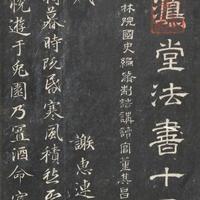 鴻堂法書十
林院國史編脩制誥講讀官董其昌
謝惠連
將暮時既昏寒風積愁雲
悅遊于兔園乃置酒命賓